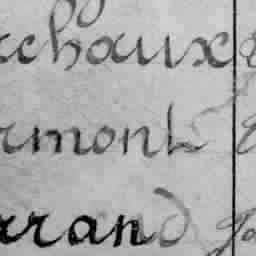 rchaux
rmont
rrand